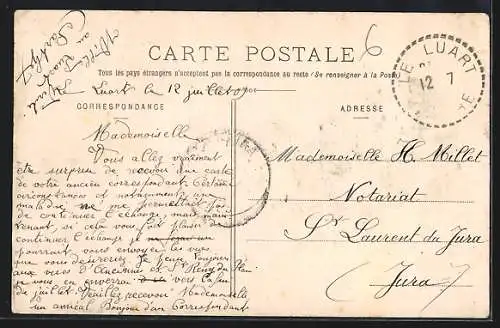 CARTE POSTALE
6
Tous les pays étrangers n'acceptent pas la correspondance au recto (Se renseigner à la Poste)
CORRESPONDANCE
ADRESSE
LE LUART
12 7
Luart le 12 juillet 09
Mademoiselle
Vous allez vraiment
être surprise de recevoir une carte
de votre ancien correspondant. Certaines
circonstances et notamment une
maladie ne me permettait pas
de continuer l'échange, mais main
tenant, si cela vous fait plaisir de
continuer l'échange je
pourrait vous envoyer les vues
que vous désirerez. Je peux
aux vues d' et St Rémy du
je vous en enverrai vers la fin
de juillet. Veuillez recevoir Mademoiselle
un amical Bonjour d'un Correspondant
Mademoiselle H. Millet
Notariat
St Laurent du Jura
(Jura)